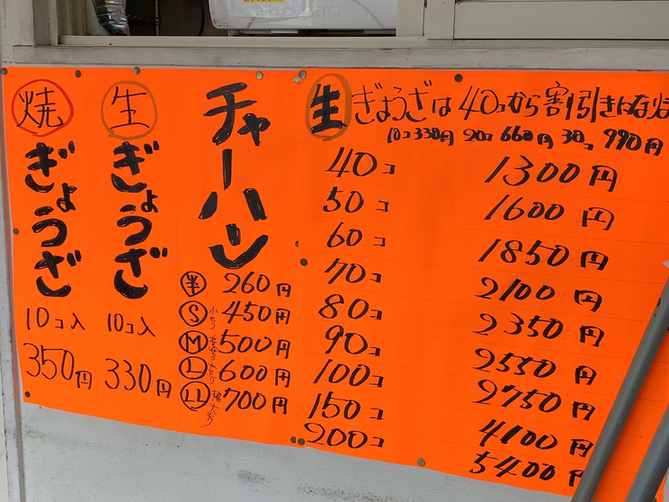 焼
ぎょうざ
10コ入
350円
生
ぎょうざ
10コ入
330円
チャーハン
半 260円
S 小もり 450円
M 500円
L 600円
LL 700円
生ぎょうざは40コから割引き
10コ330円 20コ660円 30コ990円
40コ 1300円
50コ 1600円
60コ 1850円
70コ 2100円
80コ 2350円
90コ 2550円
100コ 2750円
150コ 4100円
200コ 5400円